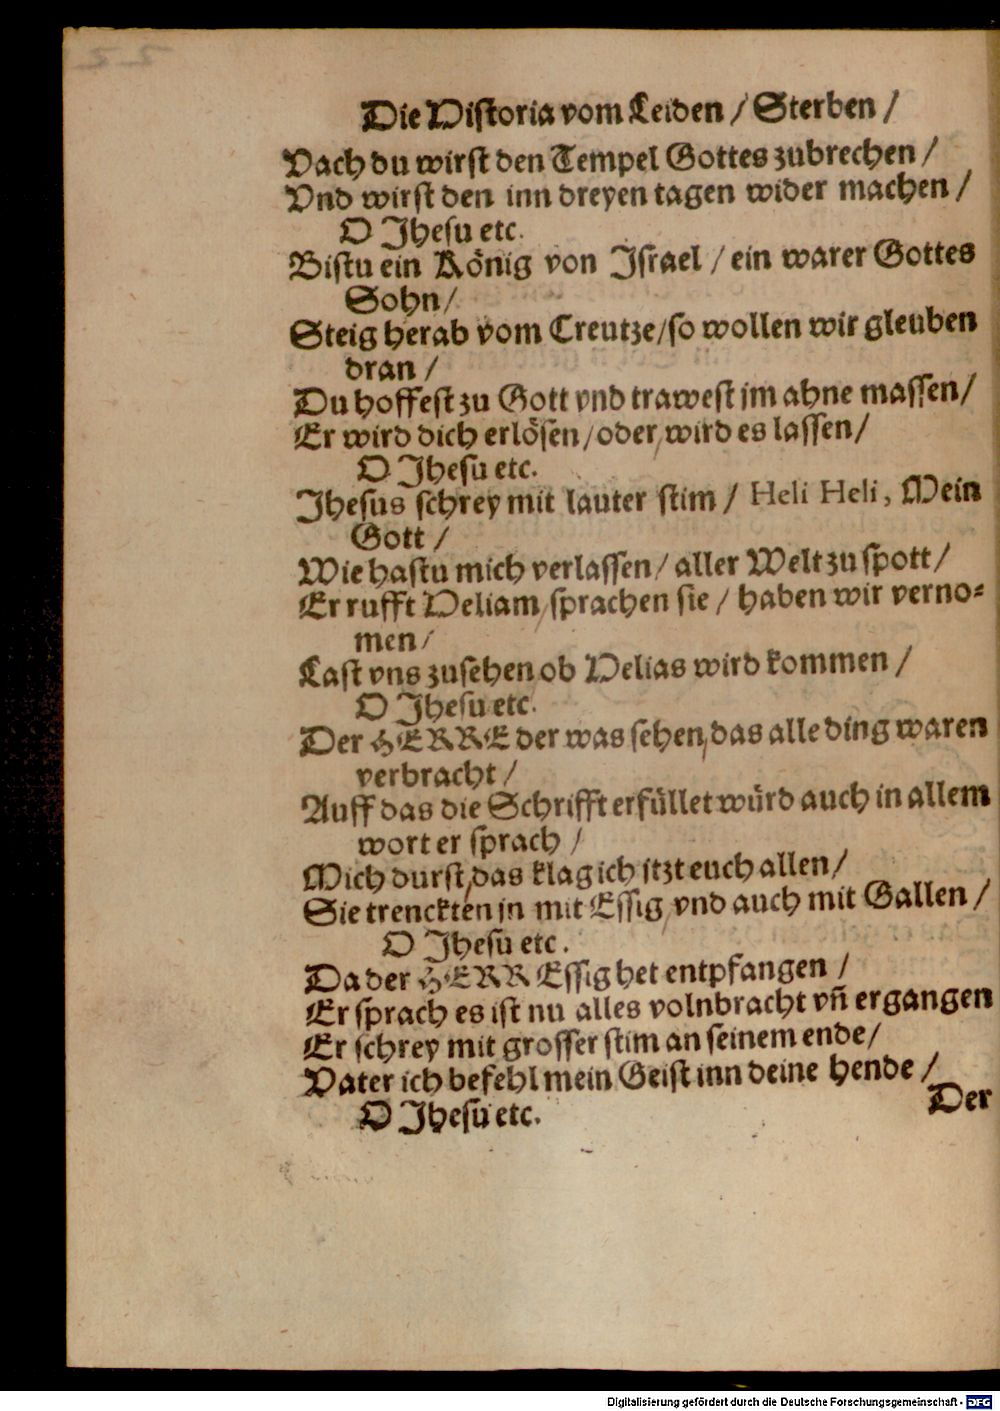 Die Historia vom Leiden / Sterben /
Vach du wirst den Tempel Gottes zubrechen /
Vnd wirst den inn dreyen tagen wider machen /
O Jhesu etc.
Bistu ein König von Israel / ein warer Gottes
Sohn /
Steig herab vom Creutze / so wollen wir gleuben
dran /
Du hoffest zu Gott vnd trawest jm ahne massen /
Er wird dich erlösen / oder / wird es lassen /
O Jhesu etc.
Jhesus schrey mit lauter stim / Heli Heli, Mein
Gott /
Wie hastu mich verlassen / aller Welt zu spott /
Er rufft Heliam / sprachen sie / haben wir verno-
men /
Last vns zusehen ob Helias wird kommen /
O Jhesu etc.
Der HERRE der was sehen / das alle ding waren
verbracht /
Auff das die Schrifft erfüllet würd auch in allem
wort er sprach /
Mich durst / das klag ich itzt euch allen /
Sie trenckten jn mit Essig / vnd auch mit Gallen /
O Jhesu etc.
Da der HERR Essig het entpfangen /
Er sprach es ist nu alles volnbracht vñ ergangen
Er schrey mit grosser stim an seinem ende /
Vater ich befehl mein Geist inn deine hende /
O Jhesu etc.
Der
Digitalisierung gefördert durch die Deutsche Forschungsgemeinschaft - DFG